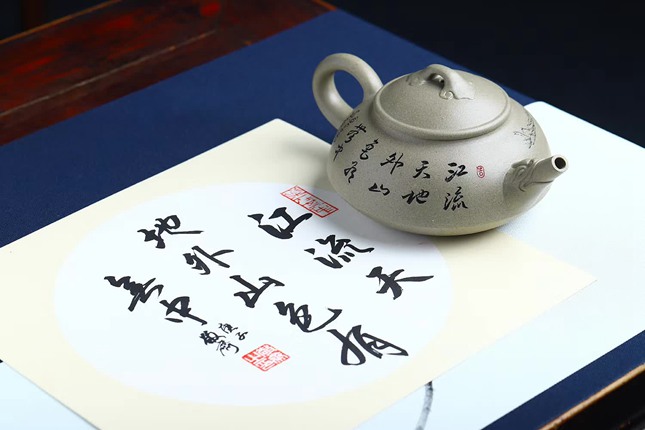 江流天
地外山色有
無中
庚子
江流
天地
外山
色有